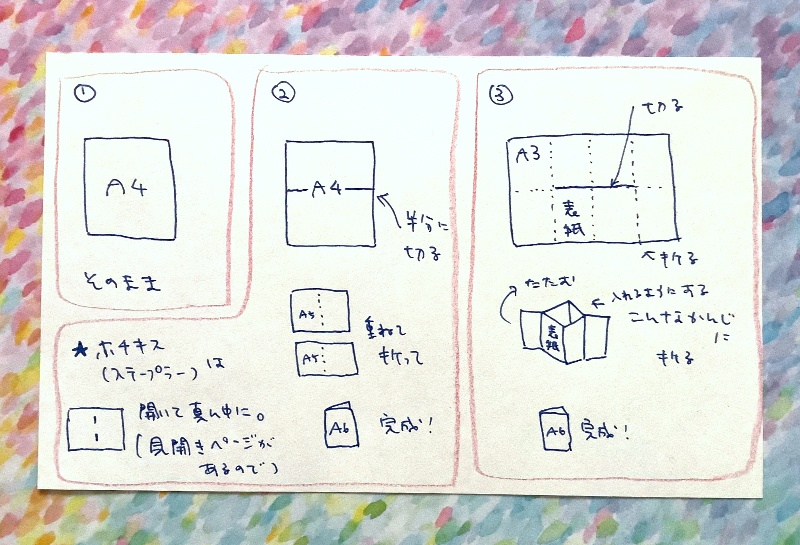 ①
A4
そのまま
②
A4
半分に
切る
A5
A5
重ねて
折って
A6
完成!
③
切る
A3
表
紙
折る
たたむ
入れるようにする
こんなかんじ
に
折る
表
紙
A6
完成!
★ ホチキス
(ステープラー)は
開いて真ん中に。
(見開きページが
あるので)